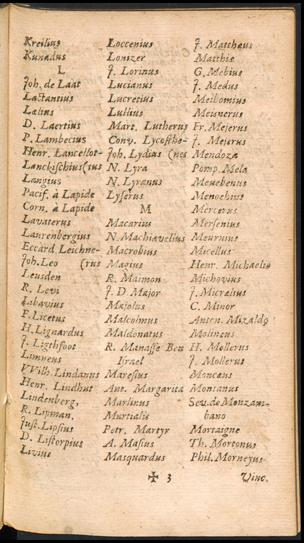 Kreilius
Kunadus
L
Joh. de Laat
Lactantius
Latius
D. Laertius
P. Lambecius
Henr. Lancellot-
Lanckischius (tus
Langius
Pacif. à Lapide
Corn. à Lapide
Lavaterus
Laurenbergius
Eccard. Leichne-
Joh. Leo (rus
Leusden
R. Levi
Libavius
F. Licetus
H. Liguardus
J. Ligtfoot
Limnens
VVilh. Lindanus
Henr. Lindhut
Lindenberg.
R. Lipman.
Just. Lipsius
D. Listorpius
Livius
Loccenius
Lonizer
J. Lorinus
Lucianus
Lucretius
Lullius
Mart. Lutherus
Conr. Lycosthe-
Joh. Lydius (nes
N. Lyra
N. Lyranus
Lyserus
M
Macarius
N. Machiavelius
Macrobius
Magius
R. Maimon
J. D. Major
Majolus
Malcolmus
Maldonatus
R. Manasse Ben
Israel
Maresius
Ant. Margarita
Marlinus
Martialis
Petr. Martyr
A. Masius
Masquardus
J. Matthæus
Matthiæ
G. Mebius
J. Medus
Meibomius
Meisnerus
Fr. Mejerus
J. Mejerus
Mendoza
Pomp. Mela
Menebenus
Menochius
Mercerus
Mersenius
Meursius
Micellus
Henr. Michaelis
Michovius
J. Micralius
C. Minor
Anton. Mizaldo
Molineus
H. Mollerus
J. Mollerus
Monceus
Montanus
Sev. de Monzam-
bano
Mortaigne
Th. Mortonus
Phil. Morneyus
✠ 3
Vinc.